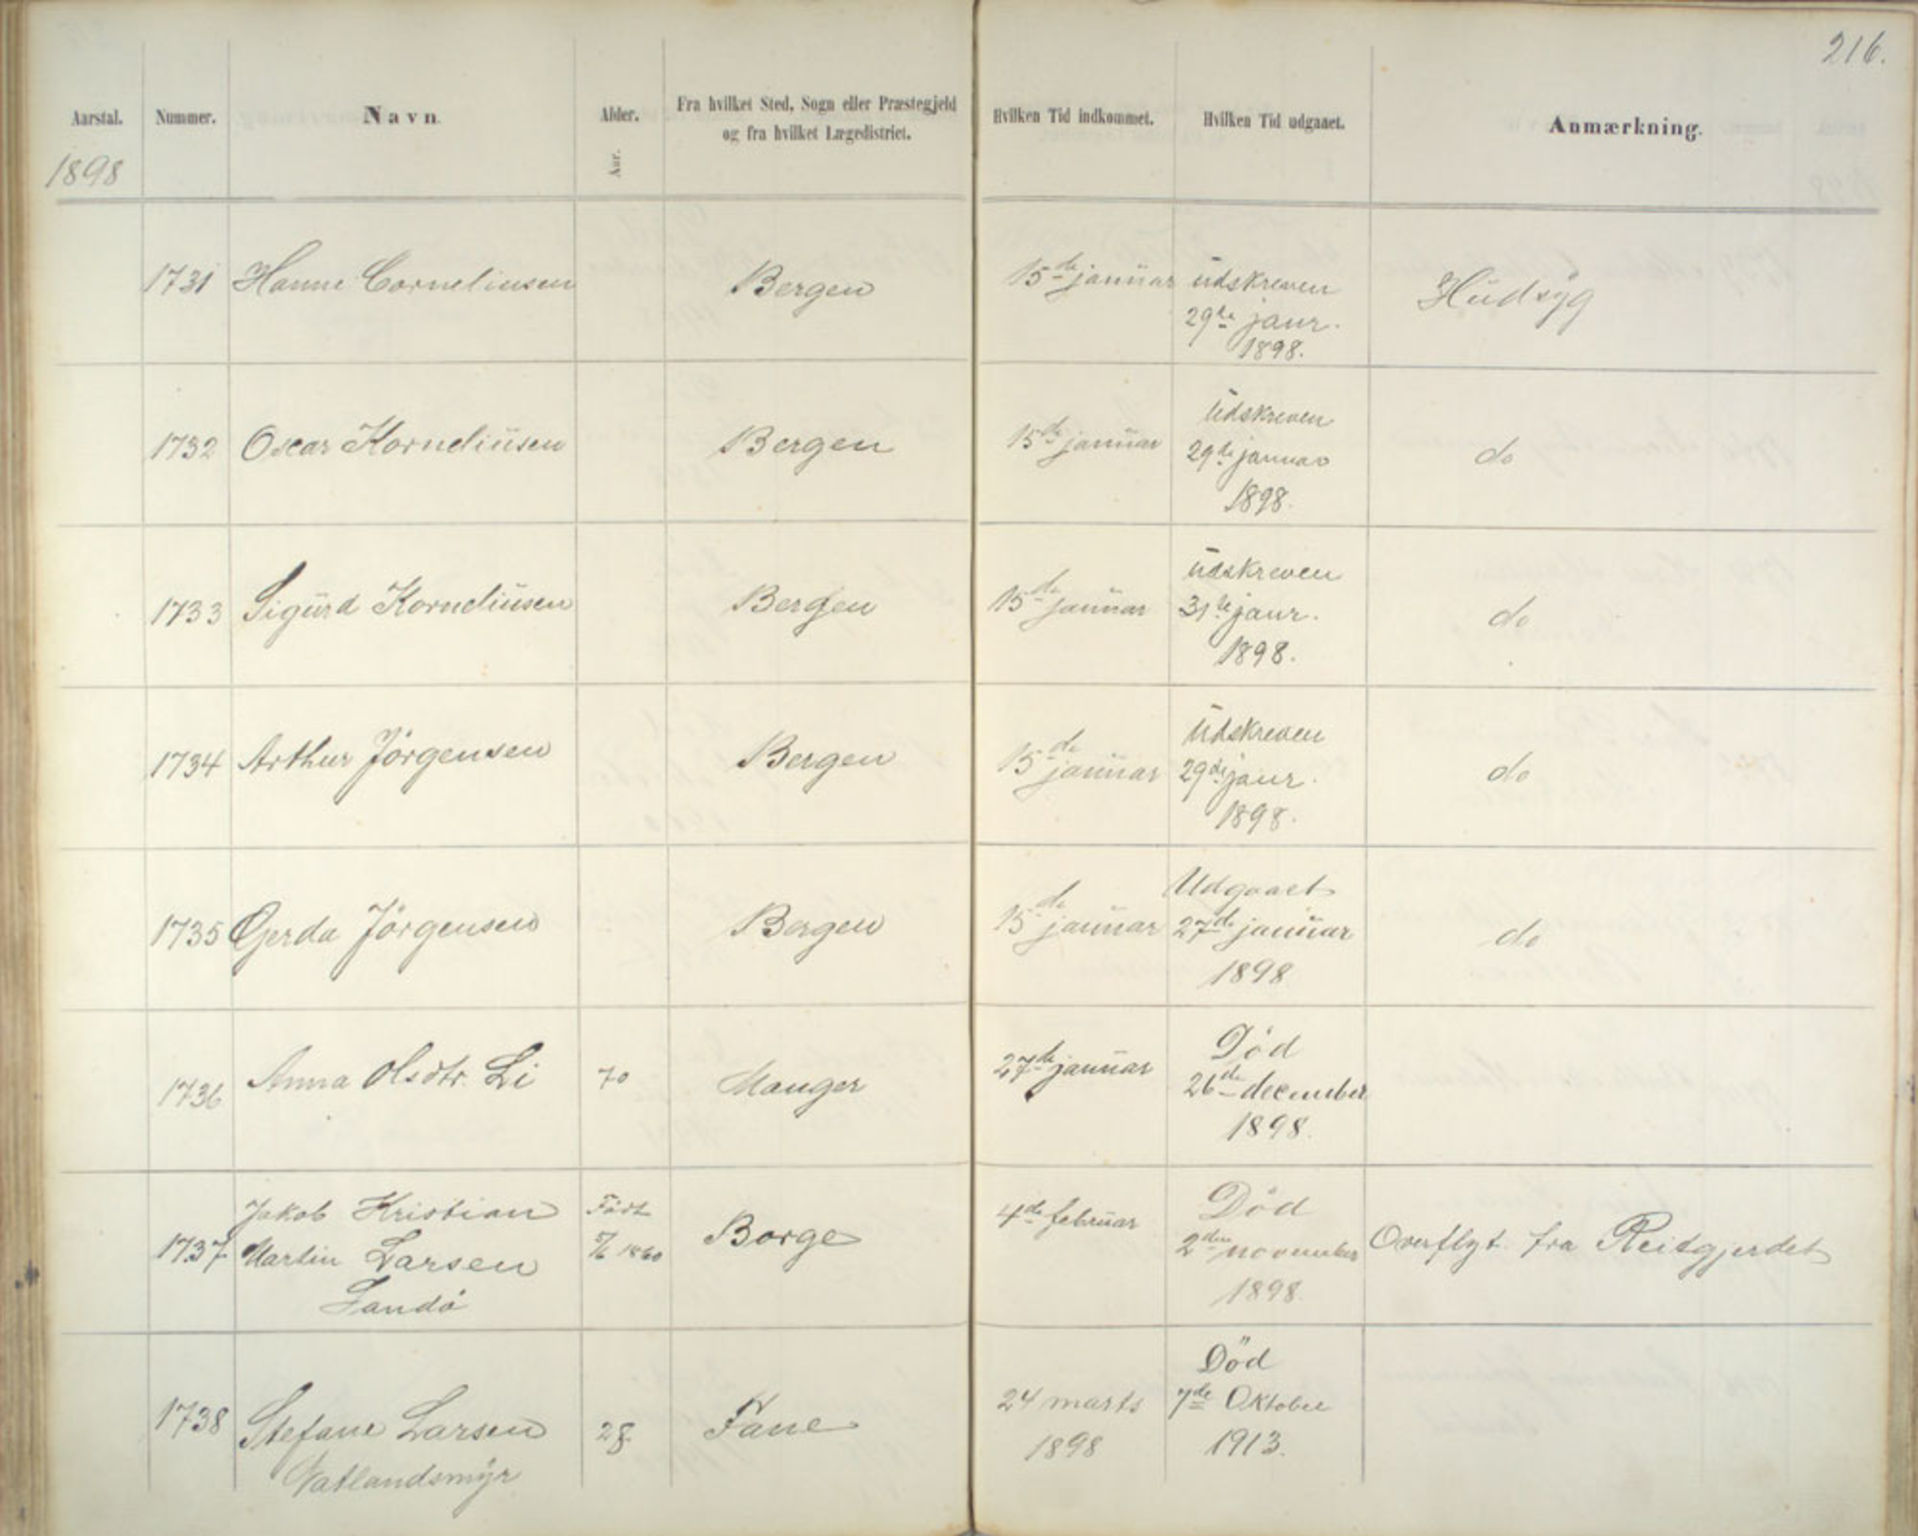 216.
Aarstal. Nummer. Navn Alder. Fra hvilket Sted, Sogn eller Præstegjeld Hvilken Tid indkommet. Hvilken Tid udgaaet. Anmærkning.
og fra hvilket Lægedistrict.
Aar.
1898
1731 Hanne Corneliusen Bergen 15de januar udskreven Hudsyg
29de janr.
1898.
1732 Oscar Korneliusen Bergen 15de januar Udskreven do
29de januar
1898.
1733 Sigurd Korneliusen Bergen 15de januar udskreven do
31te janr.
1898.
1734 Arthur Jörgensen Bergen 15de januar Udskreven do
29de janr.
1898.
1735 Gerda Jörgensen Bergen 15de januar Udgaaet do
27de januar
1898
1736 Anna Olsdtr. Li 70 Manger 27de januar Död
26de december
1898.
1737 Jakob Kristian Födt Borge 4de februar Död Overflyt fra Reitgjerdet
Martin Larsen 1860 2den november
Sandö 1898.
1738 Stefane Larsen 28 Fane 24 marts Död
Natlandsmyr 1898 7de Oktober
1913.